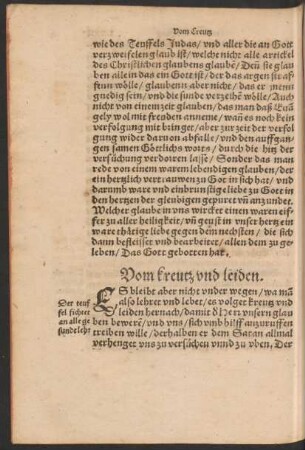 Vom Creutz
wie des Teuffels Judas/ vnd aller die an Gott
verzweifelen glaub ist/ welche nicht alle arrickel
des Christlichen glaubens glaubẽ/ Deñ sie glau
ben alle in das ein Gott ist/ der das argen straf
ftun wölle/ glauben aber nicht/ das er jmen
gnedig sein/ vnd die sunde verzeihẽ wölle/ Auch
nicht von einem zeit glauben/ das man daß Euã
gely wol mit freuden anneme/ wañ es noch kein
verfolgung mit bringet/ aber zur zeit der verfol
gung wider darvon abfalle/ vnd den auffgan
gen samen Götlichs worts/ durch die hitz der
versůchung verdorren lasse/ Sonder das man
rede von einem warem lebendigen glauben/ der
ein hertzlich vertrauwen zu Got in sich hat/ vnd
darumb ware vnd einbrunstige liebe zu Gott in
den hertzen der glenbigen gepurct vñ anzundet.
Welcher glaube in vns wircket einen waren eif
fer zu aller heiligkeit/ vñ geust in vnser hertz ein
ware thätige liebe gegen dem nechsten/ die sich
dann befleisset vnd bearbeitet/ allen dem zu ge
leben/ Das Gott gebotten hat.
Vom kreutz vnd leiden.
ES bleibt aber nicht vnder wegen/ wa mã
also lehret vnd lebet/ es volget kreutz vnd
leiden hernach/ damit Gott vnsern glau
ben bewerẽ/ vnd vns/ sich vmb hilff anzuruffen
treiben wille/ derhalben er dem Satan allmal
verhenget vns zu versůchen vnnd zu vben. Der
Der teuf
fel fichtet
an alle ge
sunde leh: